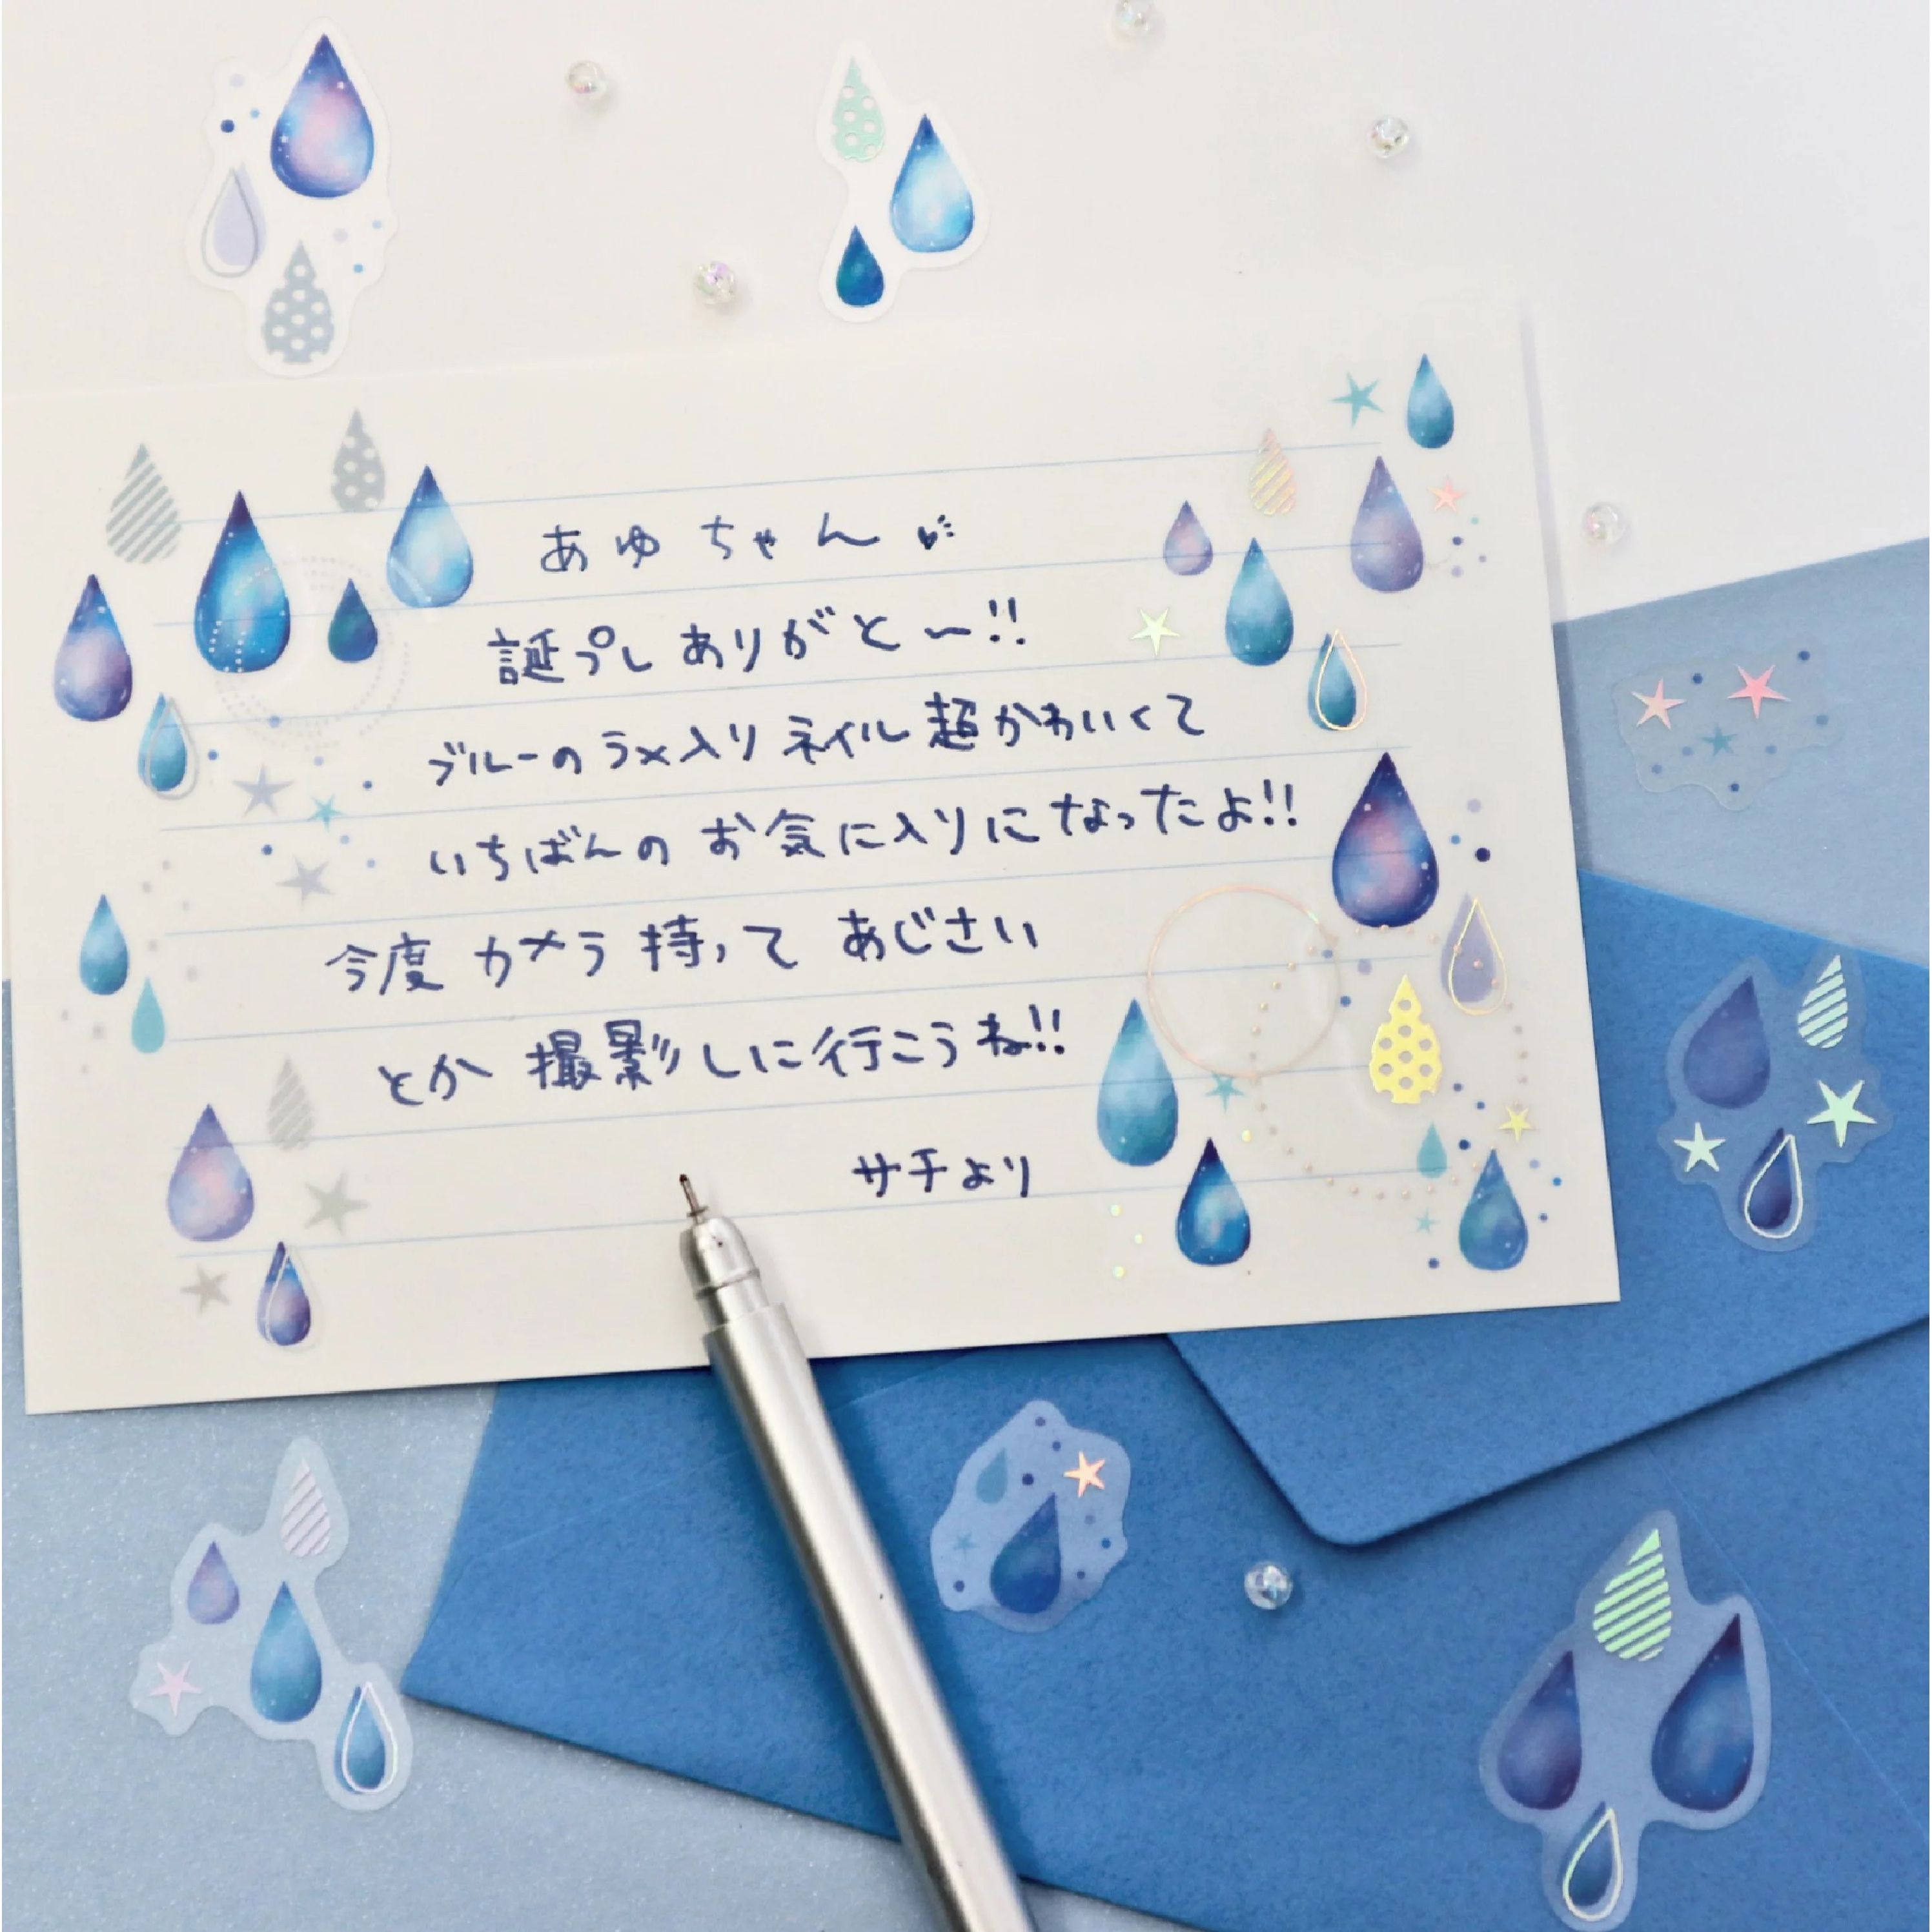 あゆちゃん
誕プレありがと〜!!
ブルーのラメ入りネイル超かわいくて
いちばんのお気に入りになったよ!!
今度カメラ持ってあじさい
とか撮影しに行こうね!!
サチより